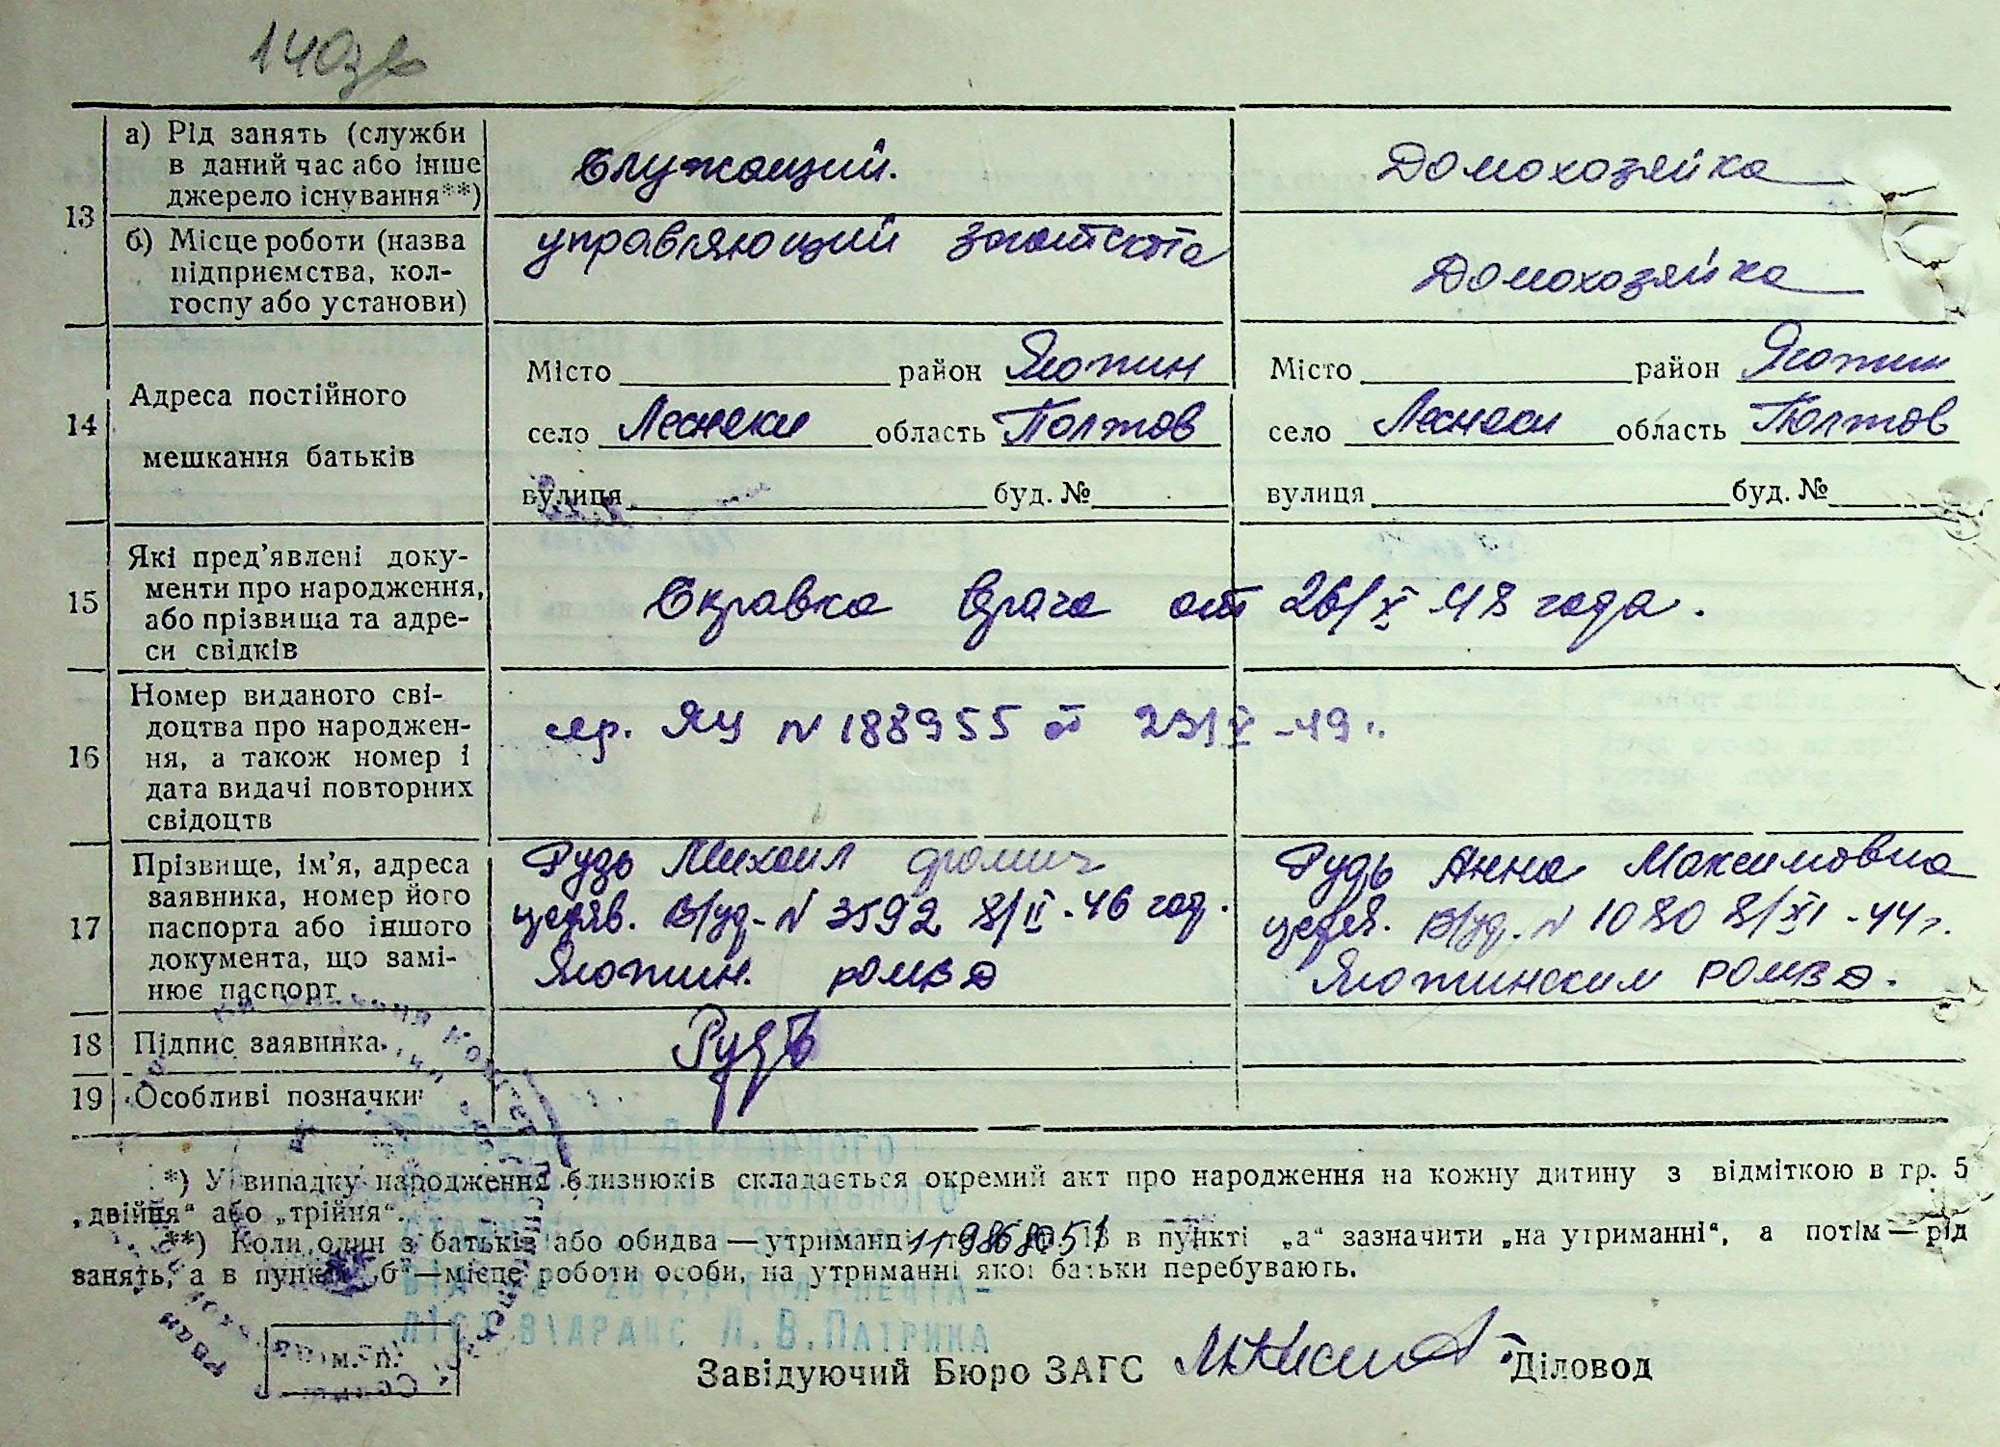 140зв
13
а) Рід занять (служби
в даний час або інше
джерело існування**)
Служащий.
Домохозяйка
б) Місце роботи (назва
підприємства, кол-
госпу або установи)
управляющий заготскота
Домохозяйка
14
Адреса постійного
мешкання батьків
Місто район Яготин
село Леснеки область Полтов
вулиця буд. №
Місто район Яготин
село Леснеки область Полтов
вулиця буд. №
15
Які пред’явлені доку-
менти про народження,
або прізвища та адре-
си свідків
Справка врача от 26/X 48 года.
16
Номер виданого сві-
доцтва про народжен-
ня, а також номер і
дата видачі повторних
свідоцтв
ЯЦ N 188955 от
17
Прізвище, ім’я, адреса
заявника, номер його
паспорта або іншого
документа, що замі-
нює паспорт
Рудь Михаил
В/уд. N 3592 8/II-46 год.
Яготин. РОМВД
Рудь Анна Максимовна
В/уд. N 1080 8/XI-44г.
Яготинским РОМВД.
18
Підпис заявника
Рудь
19
Особливі позначки
*) У випадку народження близнюків складається окремий акт про народження на кожну дитину з відміткою в гр. 5
„двійня“ або „трійня“.
**) Коли один з батьків або обидва — утриманці в пункті „а“ зазначити „на утриманні“, а потім — рід
занять, а в пункті „б“ — місце роботи особи, на утриманні якої батьки перебувають.
Внесено до Державного
Л.В.Патрика
м. п.
Завідуючий Бюро ЗАГС
Діловод